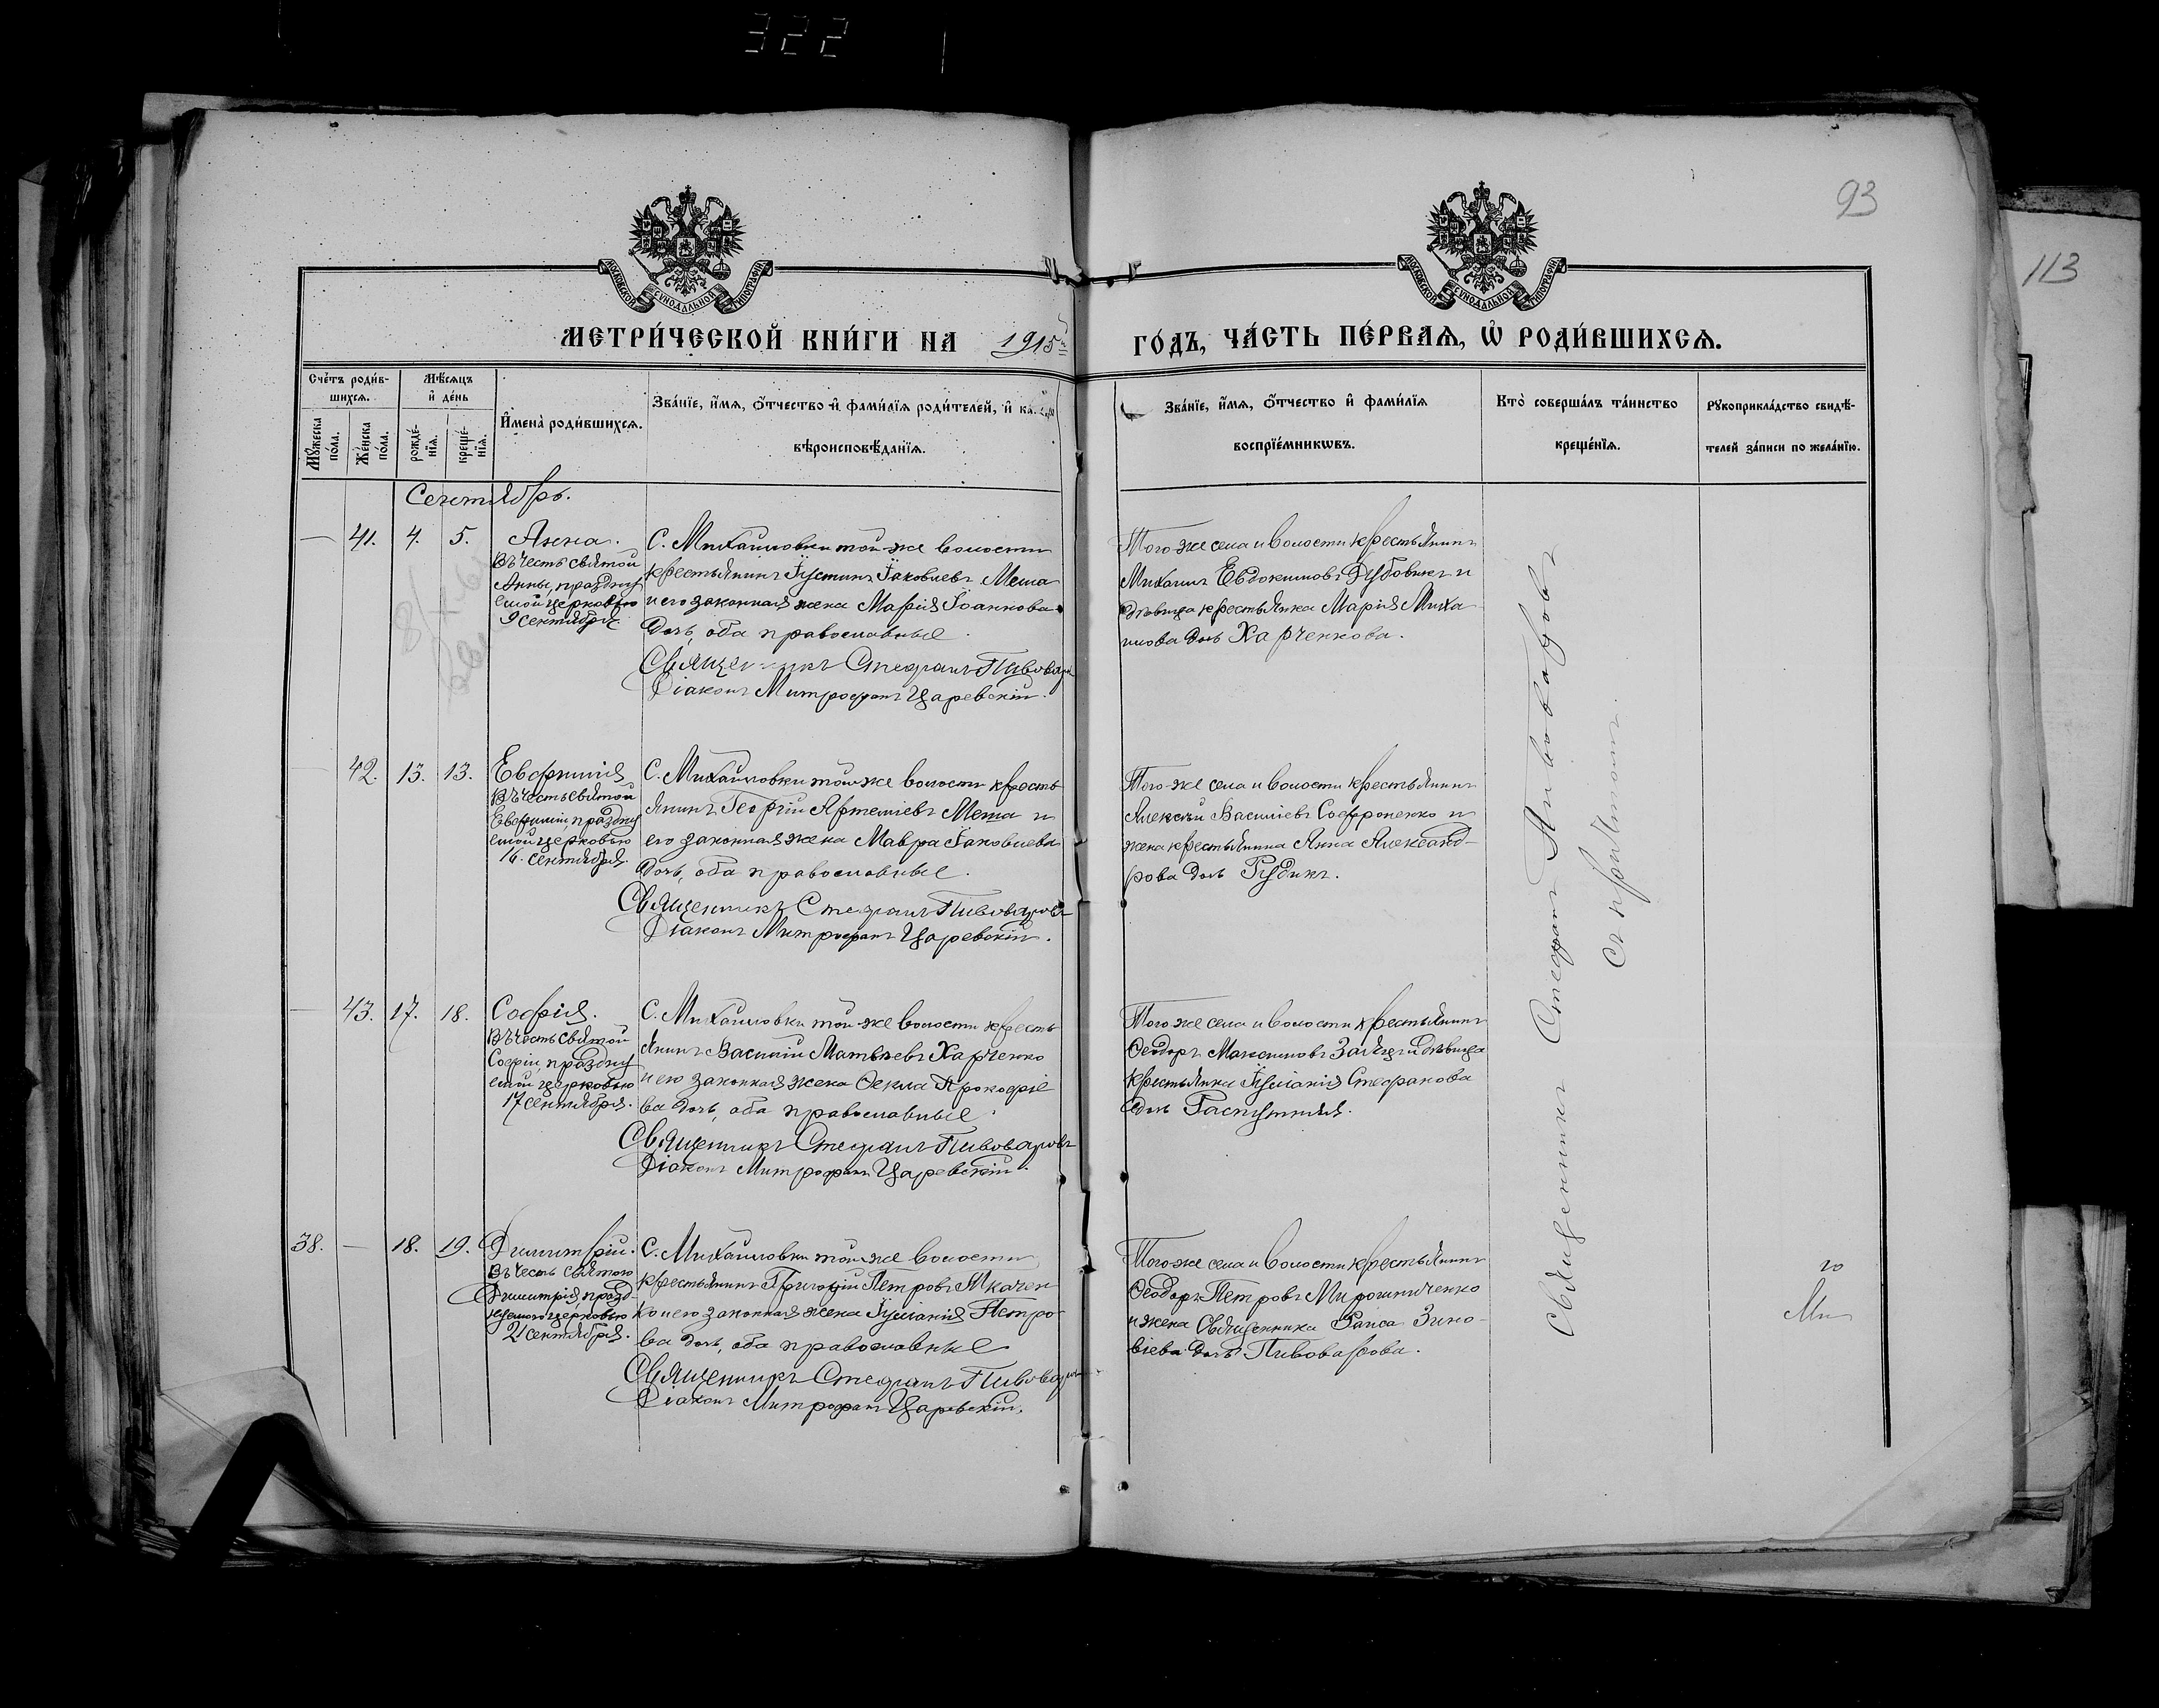 322
93
113
МОСКОВСКОЙ СѴНОДАЛЬНОЙ ТИПОГРАФІИ
МОСКОВСКОЙ СѴНОДАЛЬНОЙ ТИПОГРАФІИ
МЕТРИ́ЧЕСКОЙ КНИ́ГИ НА 1915й
ГО́ДЪ, ЧА́СТЬ ПЕ́РВАѦ, Ѡ҆ РОДИ́ВШИХСѦ.
Сче́тъ роди́в-
шихсѧ.
Мꙋ́жеска по́ла.
Же́нска по́ла.
Мѣ́сѧцъ
и҆ де́нь
рожде́-
нїѧ.
креще́-
нїѧ.
И҆мена̀ роди́вшихсѧ.
Зва́нїе, и҆́мѧ, ѻ҆́тчество и҆ фами́лїѧ роди́телей, и҆ ка-
вѣроисповѣ́данїѧ.
Зва́нїе, и҆́мѧ, ѻ҆́тчество и҆ фами́лїѧ
воспрїе́мникѡвъ.
Кто̀ соверша́лъ та́инство
креще́нїѧ.
Рꙋкоприкла́дство свидѣ́-
телей за́писи по жела́нїю.
Сентябрь.
— 41. 4. 5.
Анна.
Въ честь святой
Анны, праздну
емой церковью
9 сентября.
С. Михайловки той-же волости
крестьянинъ Іустинъ Іаковлевъ Меша
и его законная жена Марія Іоаннова
дочь, оба православные.
Священникъ Стефанъ Пивоваровъ
Діаконъ Митрофанъ Царевскій.
Того-же села и волости крестьянинъ
Михаилъ Евдокимовъ Дубовикъ и
дѣвица крестьянка Марія Миха
илова дочь Харченкова.
— 42. 13. 13.
Евфимія
Въ честь святой
Евфиміи, праздну
емой церковью
16. сентября.
С. Михайловки той-же волости кресть
янинъ Георгій Артеміевъ Меша и
его законная жена Мавра Іаковлева
дочь, оба православные.
Священникъ Стефанъ Пивоваровъ
Діаконъ Митрофанъ Царевскій.
Того-же села и волости крестьянинъ
Алексѣй Василіевъ Софроненко и
жена крестьянина Анна Александ-
рова дочь Рудикъ.
— 43. 17. 18.
Софія.
Въ честь святой
Софіи, праздну
емой церковью
17 сентября.
С. Михайловки той-же волости кресть
янинъ Василій Матвѣевъ Харченко
и его законная жена Ѳекла Прокофіе
ва дочь, оба православные.
Священникъ Стефанъ Пивоваровъ
Діаконъ Митрофанъ Царевскій.
Того же села и волости крестьянинъ
Ѳеодоръ Максимовъ Заяцъ и дѣвица
крестьянка Іуліанія Стефанова
дочь Распутняя.
38. — 18. 19.
Димитрій.
Въ честь святого
Димитрія, празд-
нуемого церковью
21 сентября.
С. Михайловки той-же волости
крестьянинъ Григорій Петровъ Ткачен
ко и его законная жена Іуліанія Петро-
ва дочь, оба православные
Священникъ Стефанъ Пивоваровъ
Діаконъ Митрофанъ Царевскій.
Того-же села и волости крестьянинъ
Ѳеодоръ Петровъ Мирошниченко
и жена Священника Раиса Зино-
віева дочь Пивоварова.
Священникъ Стефанъ Пивоваровъ
съ причтомъ.
го
Ми